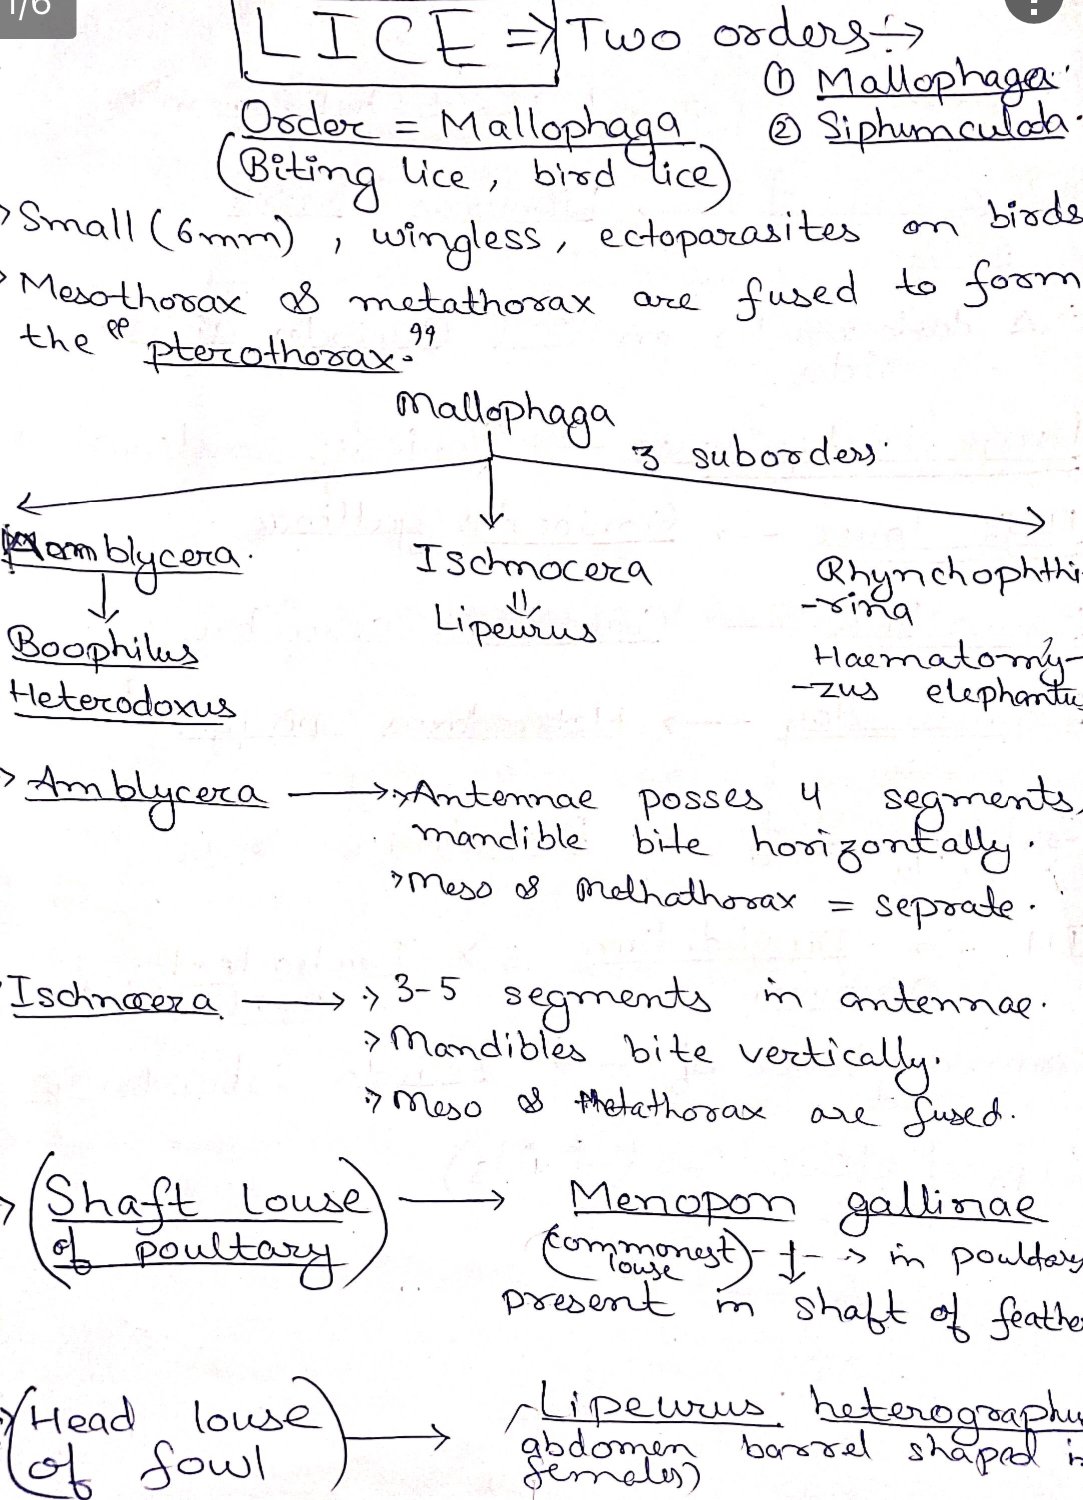 1/6
LICE => Two orders:->
① Mallophaga.
Order = Mallophaga ② Siphunculada.
(Biting lice, bird lice)
> Small (6mm), wingless, ectoparasites on birds
> Mesothorax & metathorax are fused to form
the "pterothorax."
Mallophaga
3 suborders.
Amblycera. Ischnocera Rhynchophthi
-rina
Boophilus Lipeurus Haematomy-
Heterodoxus -zus elephantu
> Amblycera → Antennae posses 4 segments,
mandible bite horizontally.
> Meso & Methathorax = seprate.
Ischnocera → 3-5 segments in antennae.
Mandibles bite vertically.
Meso & Metathorax are fused.
> (Shaft louse → Menopon gallinae
of poultary) (commonest louse) → in poultary
present in shaft of feathe
(Head louse → Lipeurus heterographu
of fowl) abdomen barrel shaped in
females)